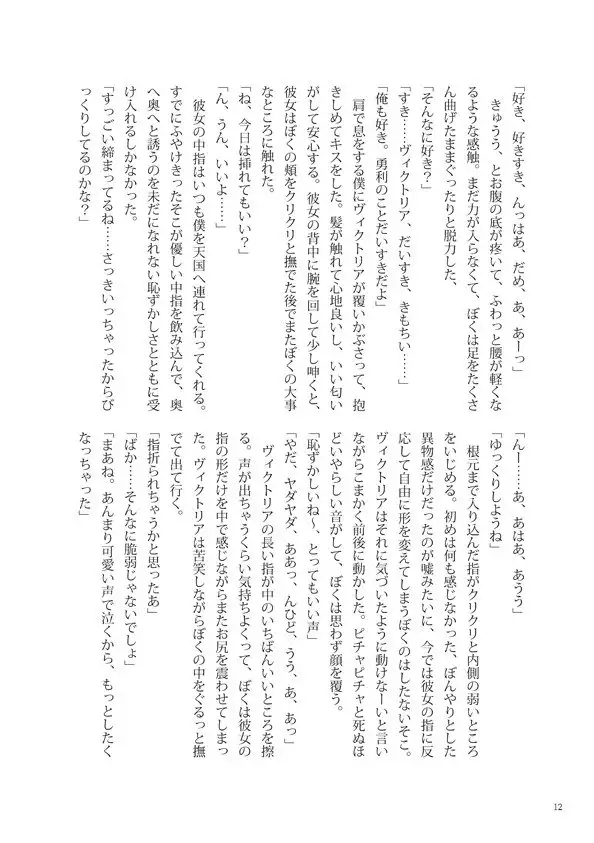 「好き、好きすき、んっはあ、だめ、あ、あーっ」
　きゅうう、とお腹の底が疼いて、ふわっと腰が軽くな
るような感触。まだ力が入らなくて、ぼくは足をたくさ
ん曲げたままぐったりと脱力した、
「そんなに好き？」
「すき……ヴィクトリア、だいすき、きもちい……」
「俺も好き。勇利のことだいすきだよ」
　肩で息をする僕にヴィクトリアが覆いかぶさって、抱
きしめてキスをした。髪が触れて心地良いし、いい匂い
がして安心する。彼女の背中に腕を回して少し呻くと、
彼女はぼくの頬をクリクリと撫でた後でまたぼくの大事
なところに触れた。
「ね、今日は挿れてもいい？」
「ん、うん、いいよ……」
　彼女の中指はいつも僕を天国へ連れて行ってくれる。
すでにふやけきったそこが優しい中指を飲み込んで、奥
へ奥へと誘うのを未だになれない恥ずかしさとともに受
け入れるしかなかった。
「すっごい締まってるね……さっきいっちゃったからび
っくりしてるのかな？」
「んー……あ、あはあ、あうう」
「ゆっくりしようね」
　根元まで入り込んだ指がクリクリと内側の弱いところ
をいじめる。初めは何も感じなかった、ぼんやりとした
異物感だけだったのが嘘みたいに、今では彼女の指に反
応して自由に形を変えてしまうぼくのはしたないそこ。
ヴィクトリアはそれに気づいたように動けなーいと言い
ながらこまかく前後に動かした。ピチャピチャと死ぬほ
どいやらしい音がして、ぼくは思わず顔を覆う。
「恥ずかしいね〜、とってもいい声」
「やだ、ヤダヤダ、ああっ、んひど、うう、あ、あっ」
　ヴィクトリアの長い指が中のいちばんいいところを擦
る。声が出ちゃうくらい気持ちよくって、ぼくは彼女の
指の形だけを中で感じながらまたお尻を震わせてしまっ
た。ヴィクトリアは苦笑しながらぼくの中をぐるっと撫
でて出て行く。
「指折られちゃうかと思ったあ」
「ばか……そんなに脆弱じゃないでしょ」
「まあね。あんまり可愛い声で泣くから、もっとしたく
なっちゃった」
12